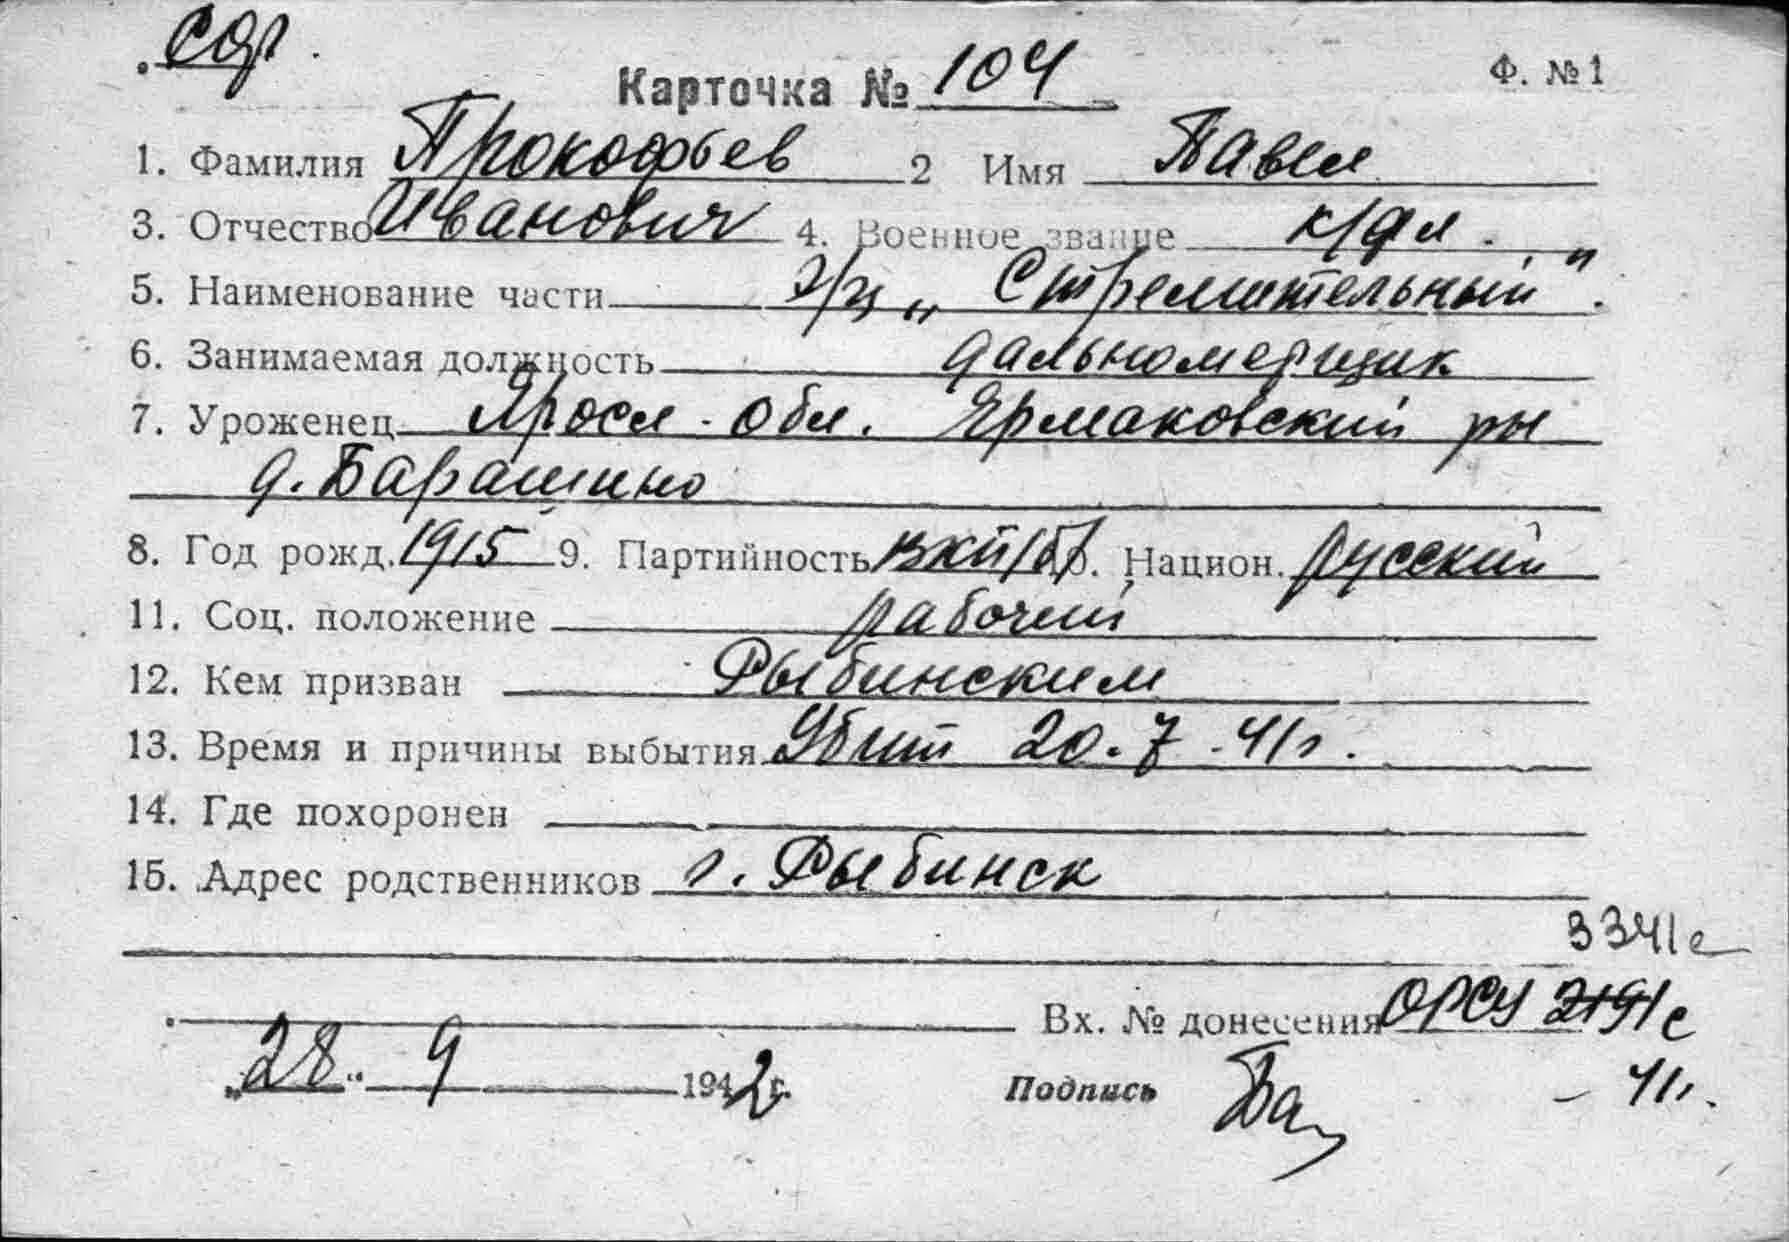 Карточка № 104
Ф. № 1
1. Фамилия Прокофьев 2 Имя Павел
3. Отчество Иванович 4. Военное звание к/фл.
5. Наименование части э/м „Стремительный".
6. Занимаемая должность дальномерщик
7. Уроженец Яросл. обл. Ярмаковский рн
д. Барашино
8. Год рожд. 1915 9. Партийность ВКП/б/ Национ. русский
11. Соц. положение рабочий
12. Кем призван Рыбинским
13. Время и причины выбытия Убит 20.7.41г.
14. Где похоронен
15. Адрес родственников г. Рыбинск
3341с
Вх. № донесения ОРСУ 2191с
„28" 9 1942г. Подпись
- 41г.